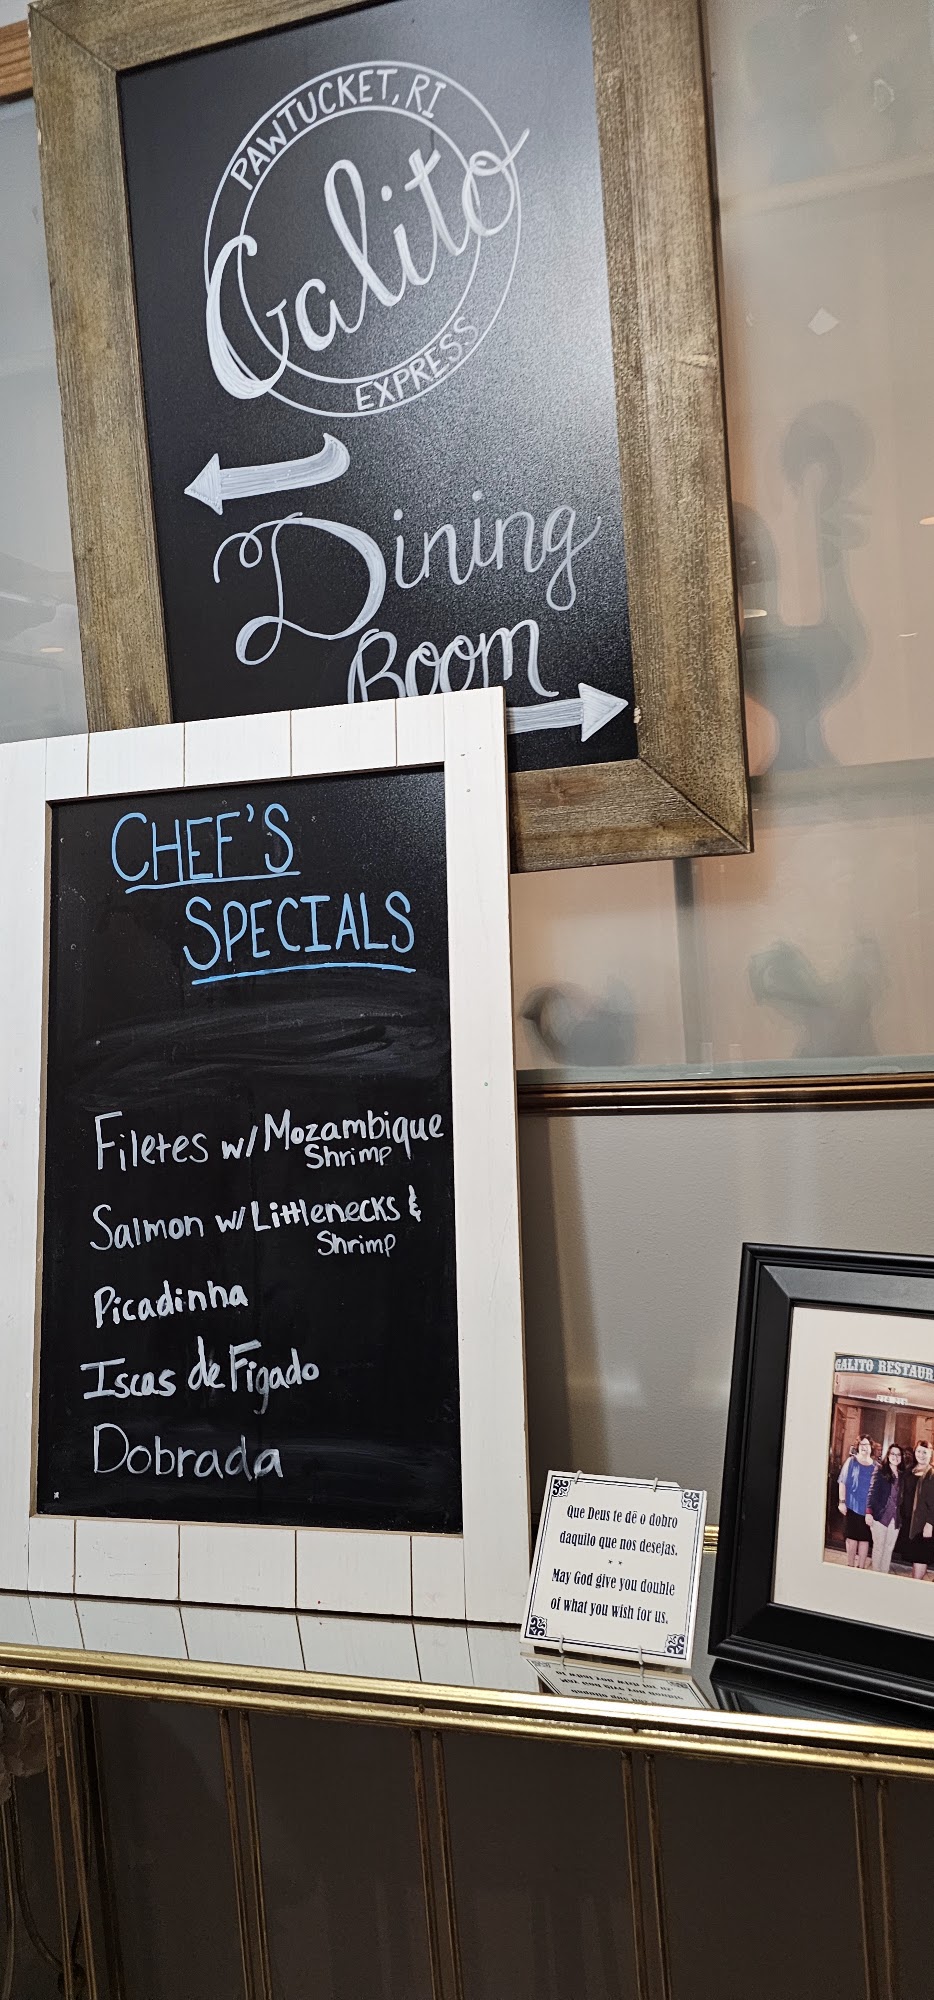 PAWTUCKET, RI
Galito
EXPRESS
Dining
Room
CHEF'S
SPECIALS
Filetes w/ Mozambique
Shrimp
Salmon w/ Littlenecks &
Shrimp
Picadinha
Iscas de Figado
Dobrada
Que Deus te dê o dobro
daquilo que nos desejas.
* *
May God give you double
of what you wish for us.
GALITO RESTAUR